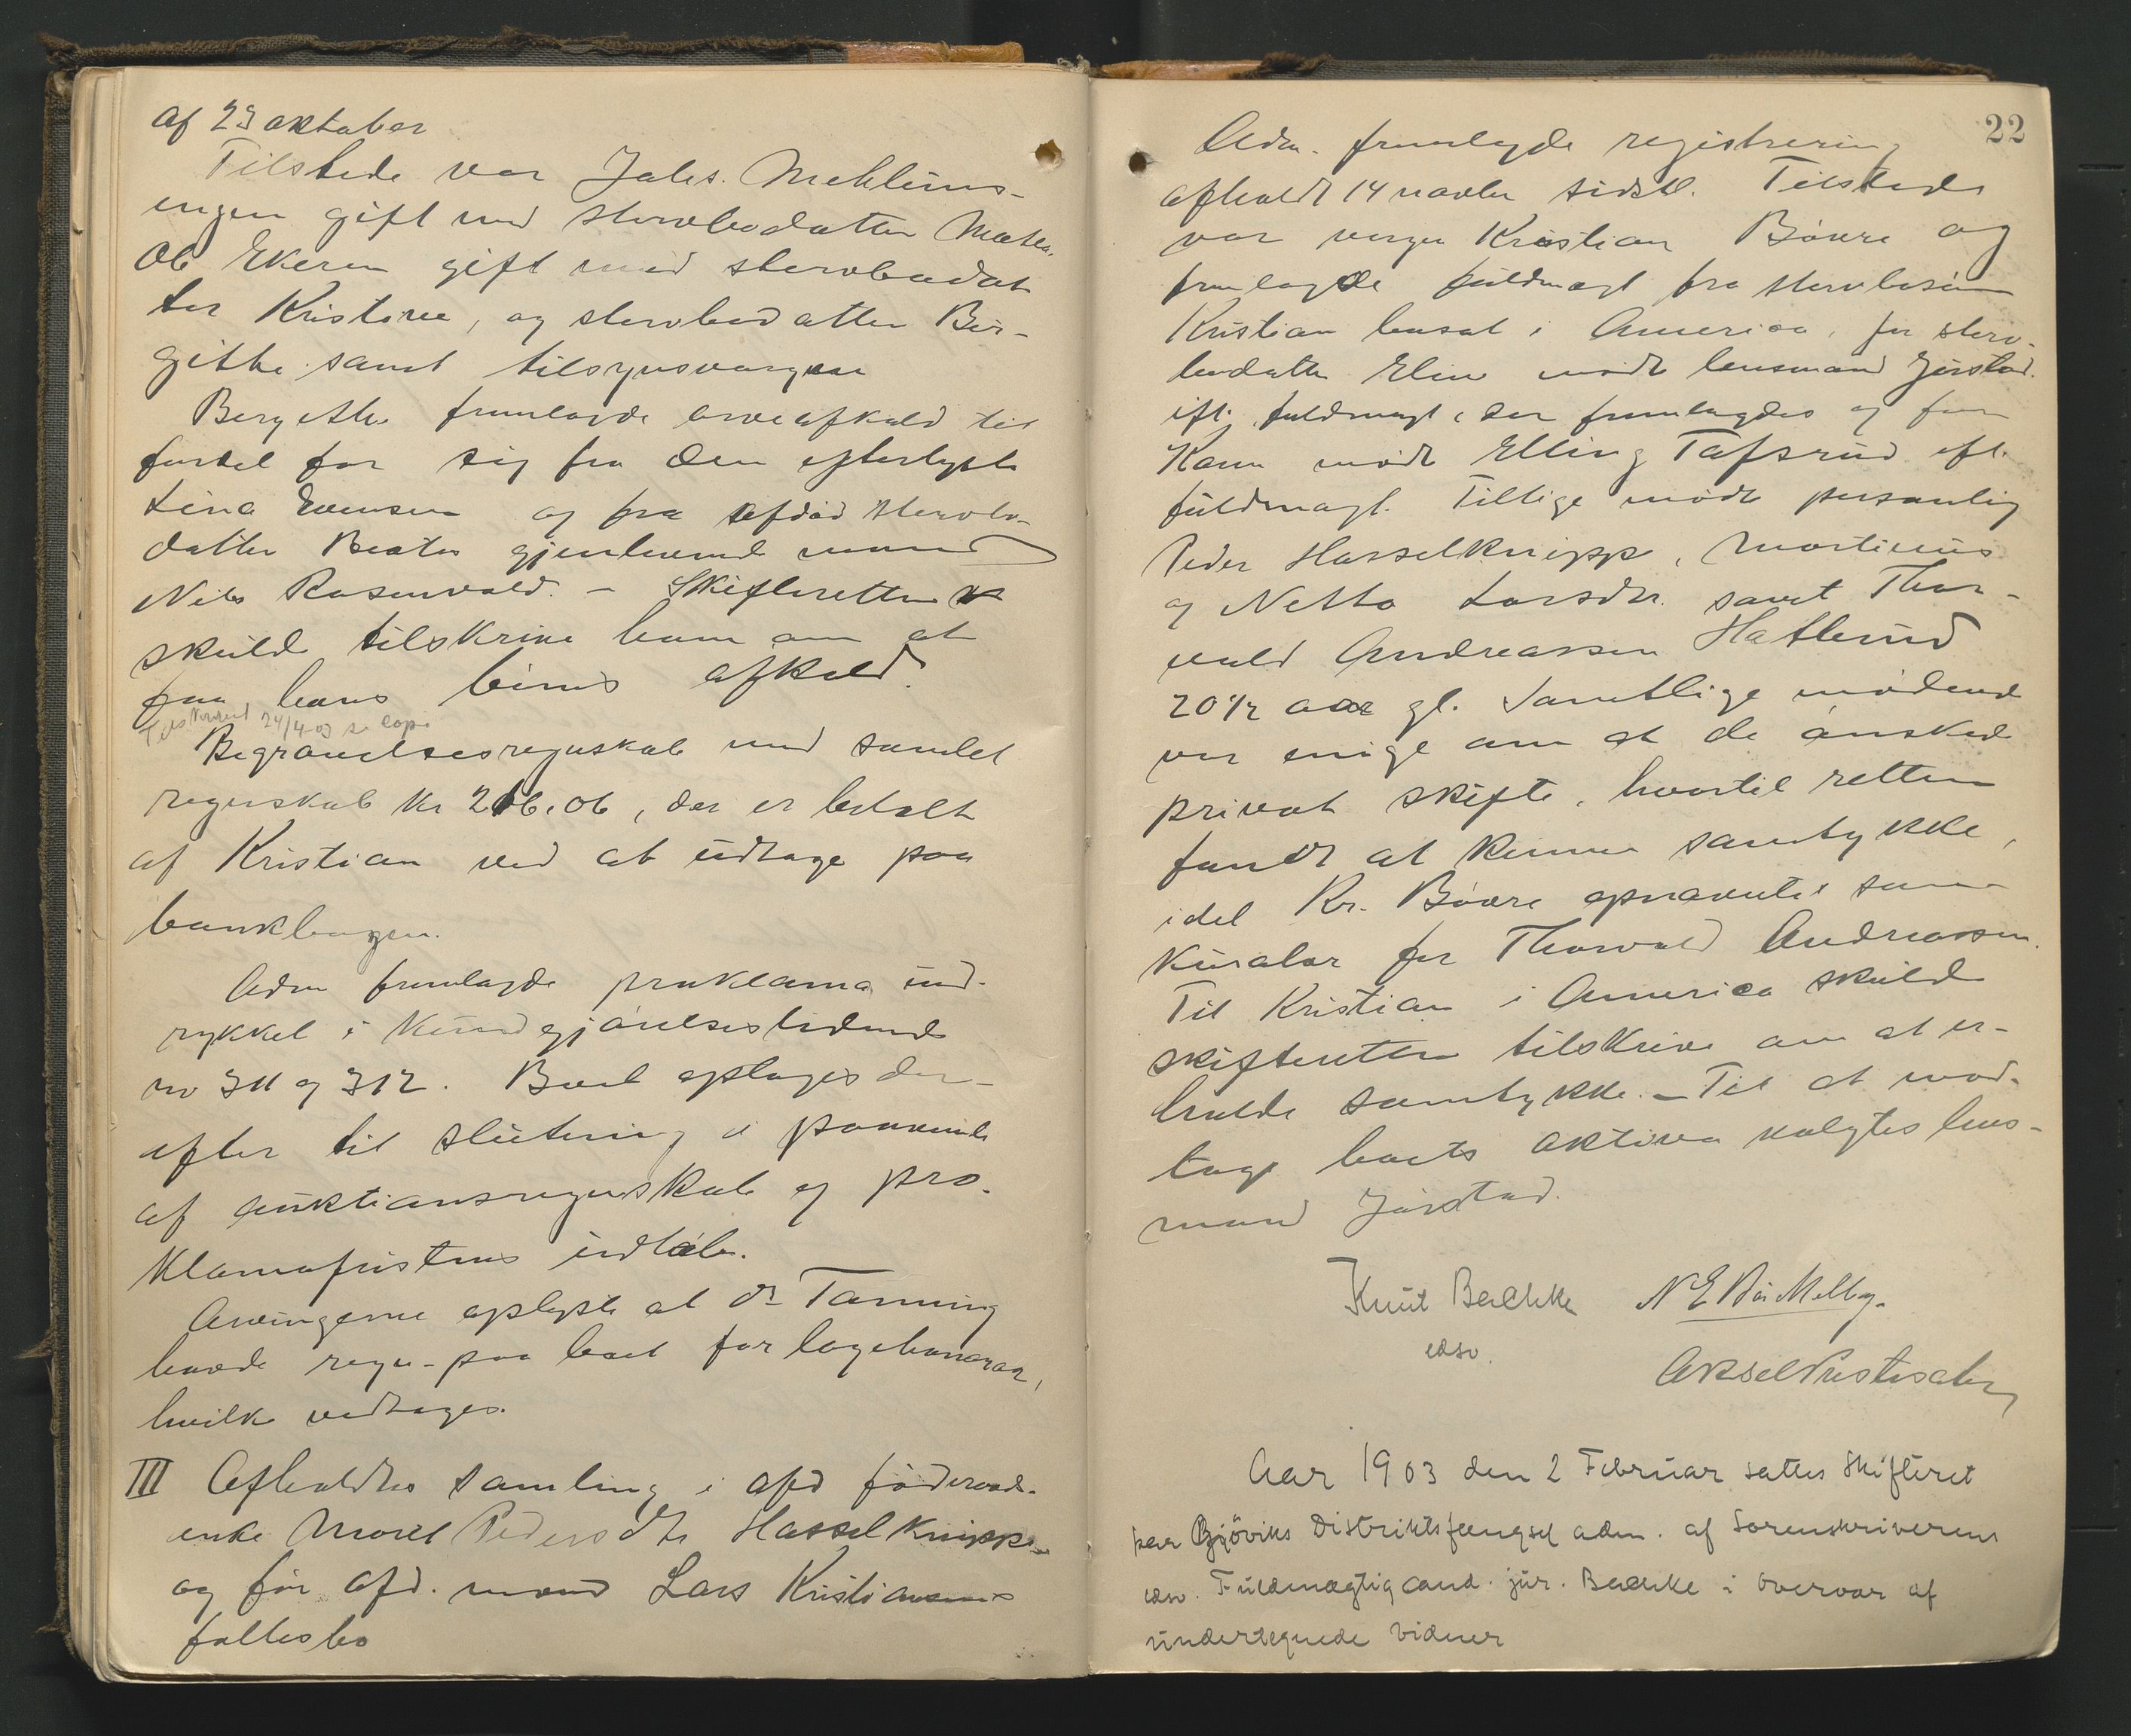 af 23 oktober
Tilstede var Johs. Mehlums-
engen gift med stervbodatter Mathea.
Ole Ekeren gift med stervbodat
ter Kristine, og stervbodatter Bir-
gitte samt tilsynsværgen
Bergethe fremlagde arveafkald til
fordel for sig fra den efterlyste
Lina Evensen og fra afdød stervbo-
datter Beates gjenlevende mand
Nils Rosenvold. – Skifteretten
skulde tilskrive ham om at
faa hans bevis afkald.
Tilskrevet 24/4 03 se kopi
Begravelsesregnskab med samlet
regnskab kr 206.06, der er betalt
af Kristian ved at udtage paa
bankbogen.
Adm fremlagde proklama ind-
rykket i Kundgjørelsestidende
no 311 og 312. Boet optages der-
efter til slutning i paavente
af auktionsregnskab og pro-
klamafristens udløb.
Arvingerne oplyste at dr Tanning
havde regn. paa boet for lægehonorar,
hvilke vedtages.
III Afholdtes samling i afd føderaads-
enke Marit Pedersdtr Hasselknippe
og før afd. mand Lars Kristiansens
fællesbo
22
Adm. fremlagde registrering
afholdt 14 novbr sidstl. Tilstede
var verge Kristian Bøvre og
fremlagde fuldmagt fra stervbosøn
Kristian bosat i America, for sterv-
bodatter Eline mødte lensmand Jørstad
ift. fuldmagt, der fremlagdes og for
Karen mødte Elling Tafsrud ift.
fuldmagt. Tillige mødte personlig
Peder Hasselknippe, Martinus
og Netta Larsdtr. samt Thor-
vald Andreassen Hatterud
20 1/2 aar gl. Samtlige mødende
var enige om at de ønskede
privat skifte, hvortil retten
fandt at kunne samtykke,
idet Kr. Bøvre opnævntes som
Kurator for Thorvald Andreassen.
Til Kristian i America skulde
skifteretten tilskrive om at er-
holde samtykke. – Til at mod-
tage boets aktiva valgtes lens-
mand Jørstad.
Knut Bachke N E Melby.
edsv.
Aksel
Aar 1903 den 2 Februar sattes Skifteret
paa Gjøviks Distriktsfængsel adm. af Sorenskriverens
edsv. Fuldmægtig cand. jur. Bachke i Overvær af
undertegnede Vidner